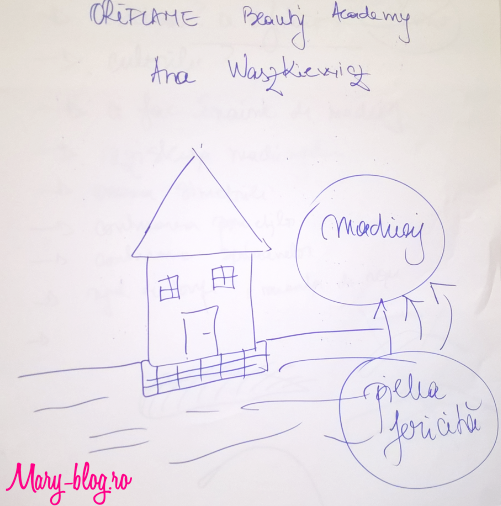 ORiFLAME Beauty Academy
Ana Waszkiewicz
machiaj
pielea
fericită
Mary-blog.ro